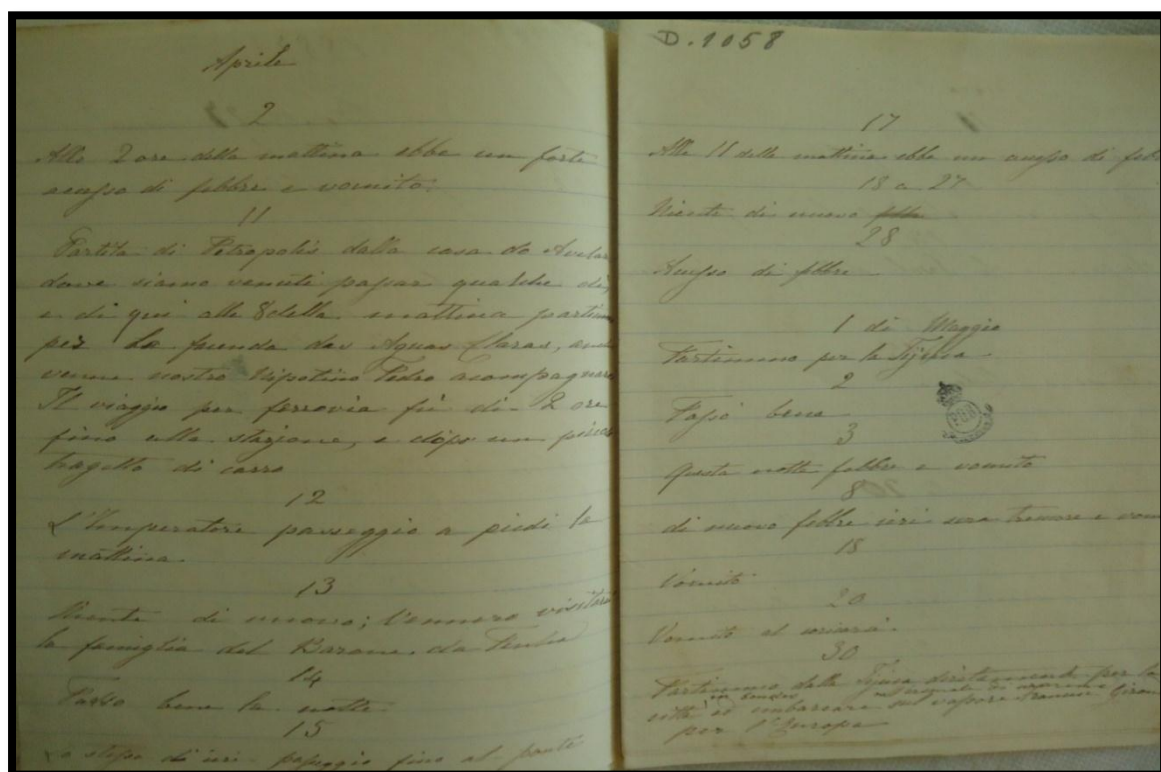 Aprile
2
Alle 2 ore della mattina ebbe un forte
acesso di febbri e vomito.
11
Partita di Petropolis dalla casa do Avelar
dove siamo venuti passar qualche di,
e di qui alle 8 della mattina partimmo
per la fazenda das Aguas Claras,
venne nostro Nipotino Pedro acompagnare
Il viaggio per ferrovia fù di 2 ore
fino alla stazione, e dopo un piccolo
tragetto di carro
12
L'Imperatore passeggio a piedi la
mattina.
13
Niente di nuovo; Vennero visitare
la famiglia del Barone da
14
Passò bene la notte.
15
Lo stesso di ieri passeggio fino al ponte
D. 1058
17
Alle 11 della mattina ebbe un acesso di feb
18 a 27
Niente di nuovo
28
Acesso di febbre
1 di Maggio
Partimmo per la Tijuca
2
Passò bene
PGR
3
Questa notte febbre e vomito
8
di nuovo febbre ieri sera tremore e vom
18
Vomito
20
Vomito al
30
Partimmo dalla Tijuca direttamente per la
città ad imbarcare sul vapore Giron
per l'Europa